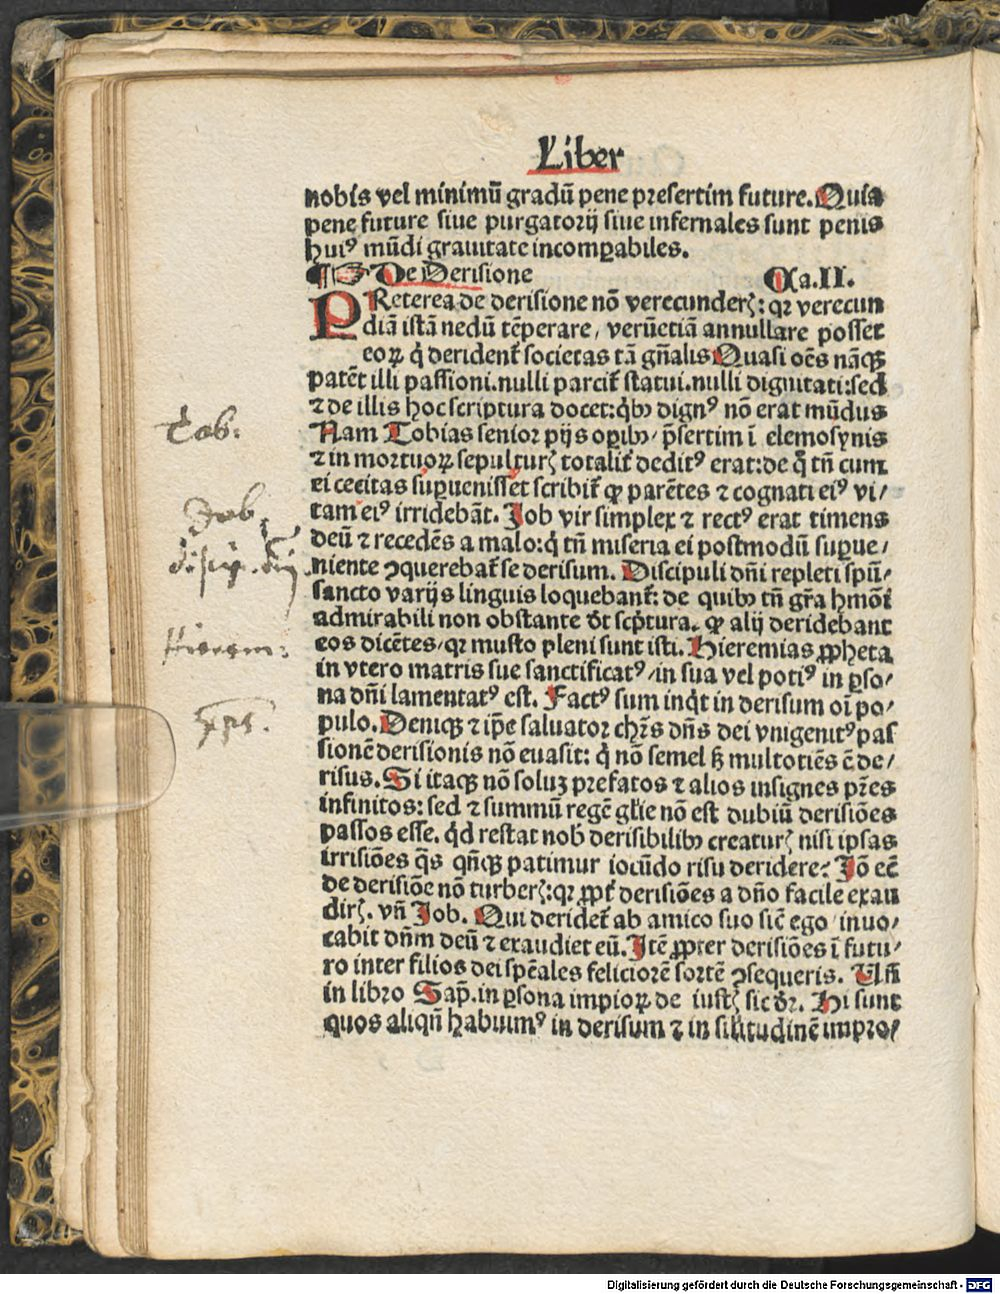 Liber
nobis vel minimū gradū pene presertim future. Quia
pene future siue purgatorij siue infernales sunt penis
huiꝰ mūdi grauitate incomꝑabiles.
¶ ☞ De Derisione Ca. II.
PReterea de derisione nō verecunderꝭ: qꝛ verecun
diā istā nedū tēperare, verūetiā annullare posset
eoꝝ q̇ derident᷑ societas tā gn̄alis Quasi oēs nāqꝫ
patēt illi passioni. nulli parcit᷑ statui. nulli dignitati: sed
⁊ de illis hoc scriptura docet: qͥbꝰ dignꝰ nō erat mūdus
Nam Tobias senior pijs oꝑibꝰ, p̄sertim ī elemosynis
⁊ in mortuoꝝ sepulturꝭ totalit᷑ deditꝰ erat: de q̄ tn̄ cum
ei cecitas suꝑuenisset scribit᷑ ꝙ parētes ⁊ cognati eiꝰ vi/
tam eiꝰ irridebāt. Job vir simplex ⁊ rectꝰ erat timens
deū ⁊ recedēs a malo: q̇ tn̄ miseria ei postmodū suꝑue/
niente ꝯquerebat᷑ se derisum. Discipuli dn̄i repleti spū/
sancto varijs linguis loquebant᷑: de quibꝰ tn̄ gr̄a hmōi
admirabili non obstante dt̄ scp̄tura. ꝙ alij deridebant
eos dicētes, qꝛ musto pleni sunt isti. Hieremias ꝓpheta
in vtero matris sue sanctificatꝰ, in sua vel potiꝰ in ꝑso/
na dn̄i lamentatꝰ est. Factꝰ sum inqͥt in derisum oī po/
pulo. Deniqꝫ ⁊ ip̄e saluator chr̄s dn̄s dei vnigenitꝰ pas
sionē derisionis nō euasit: q̇ nō semel sꝫ multotiēs ē de/
risus. Si itaqꝫ nō soluꝫ prefatos ⁊ alios insignes pr̄es
infinitos: sed ⁊ summū regē gl̄ie nō est dubiū derisiōes
passos esse. qͥd restat nob̄ derisibilibꝰ creaturꝭ nisi ipsas
irrisiōes q̄s qn̄qꝫ patimur iocūdo risu deridere? Jō ec̄
de derisiōe nō turberꝭ: qꝛ ꝓpt᷑ derisiōes a dn̄o facile exau
dirꝭ. vn̄ Job. Qui deridet᷑ ab amico suo sic̄ ego, inuo/
cabit dn̄m deū ⁊ exaudiet eū. Itē ꝓpter derisiōes ī futu/
ro inter filios dei spēales feliciorē sortē ꝯsequeris. Vn̄
in libro Sap̄. in ꝑsona impioꝝ de iustꝭ sic dr̄. Hi sunt
quos aliqn̄ habuimꝰ in derisum ⁊ in sil̄itudinē impro/
Tob:
Job.
discip. dn̄j
Hierem:
xps̄.
Digitalisierung gefördert durch die Deutsche Forschungsgemeinschaft - DFG